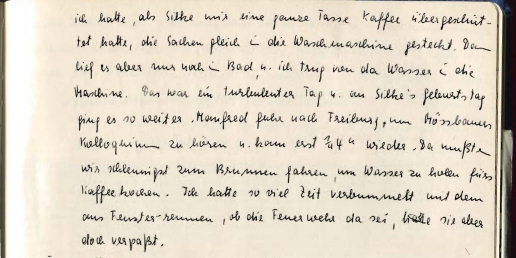 ich hatte, als Silke mir eine ganze Tasse Kaffee übergeschüt-
tet hatte, die Sachen gleich in die Waschmaschine gesteckt. Da
lief es aber nur noch in Bad, u. ich trug von da Wasser in die
Maschine. Das war ein turbulenter Tag u. an Silke's Geburtstag
ging es so weiter. Manfred fuhr nach Freiburg, um Mössbauers
Kolloquium zu hören u. kam erst 1/2 4 h wieder. Da mußten
wir schleunigst zum Brunnen fahren, um Wasser zu holen fürs
Kaffeekochen. Ich hatte so viel Zeit verbummelt mit dem
ans Fenster-rennen, ob die Feuerwehr da sei, hatte sie aber
doch verpaßt.